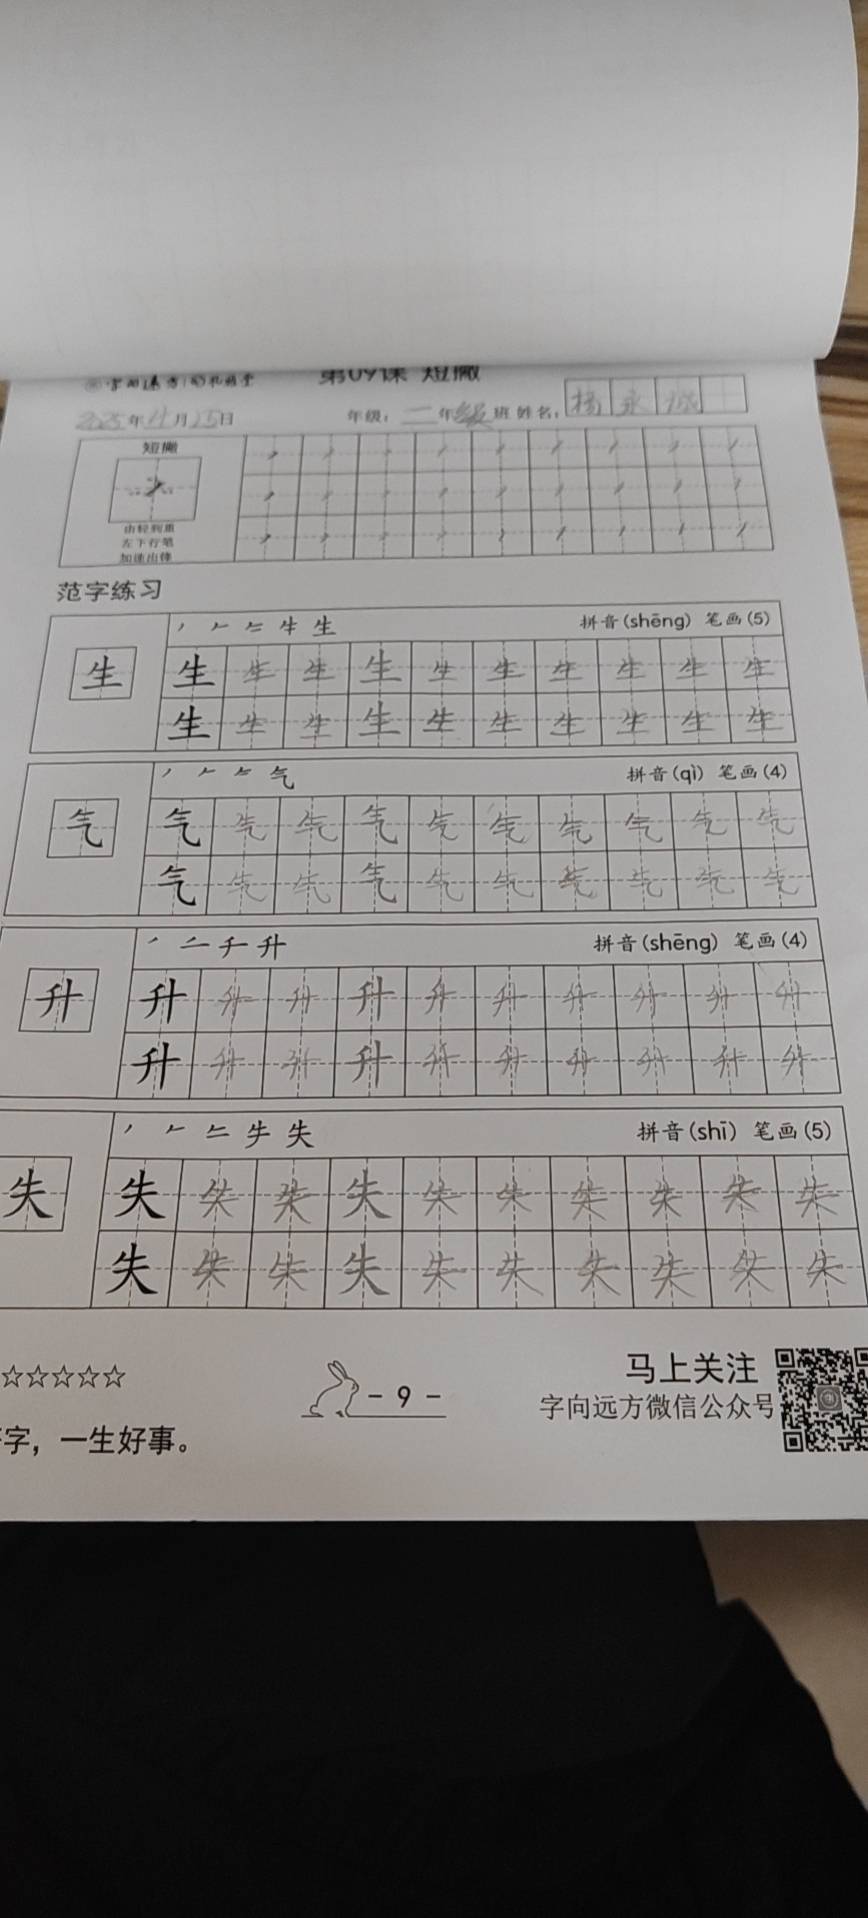 第09课 短撇
2025年11月25日 年级：二年级班 姓名：杨永
短撇
由轻到重
左下行笔
加速出锋
范字练习
牛 生 拼音(shēng) 笔画(5)
生 生 生 生 生 生 生 生 生 生 生
生 生 生 生 生 生 生 生 生 生
气 拼音(qì) 笔画(4)
气 气 气 气 气 气 气 气 气 气 气
气 气 气 气 气 气 气 气 气 气
升 拼音(shēng) 笔画(4)
升 升 升 升 升 升 升 升 升 升 升
升 升 升 升 升 升 升 升 升 升
失 拼音(shī) 笔画(5)
失 失 失 失 失 失 失 失 失 失 失
失 失 失 失 失 失 失 失 失 失
☆☆☆☆☆ - 9 - 马上关注
字向远方微信公众号
字，一生好事。